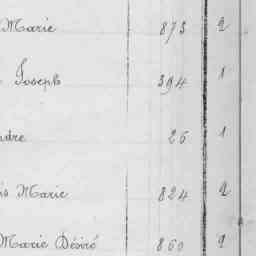 Marie 873 2
Joseph 394 1
dre 26 1
is Marie 824 2
Marie Désiré 860 2